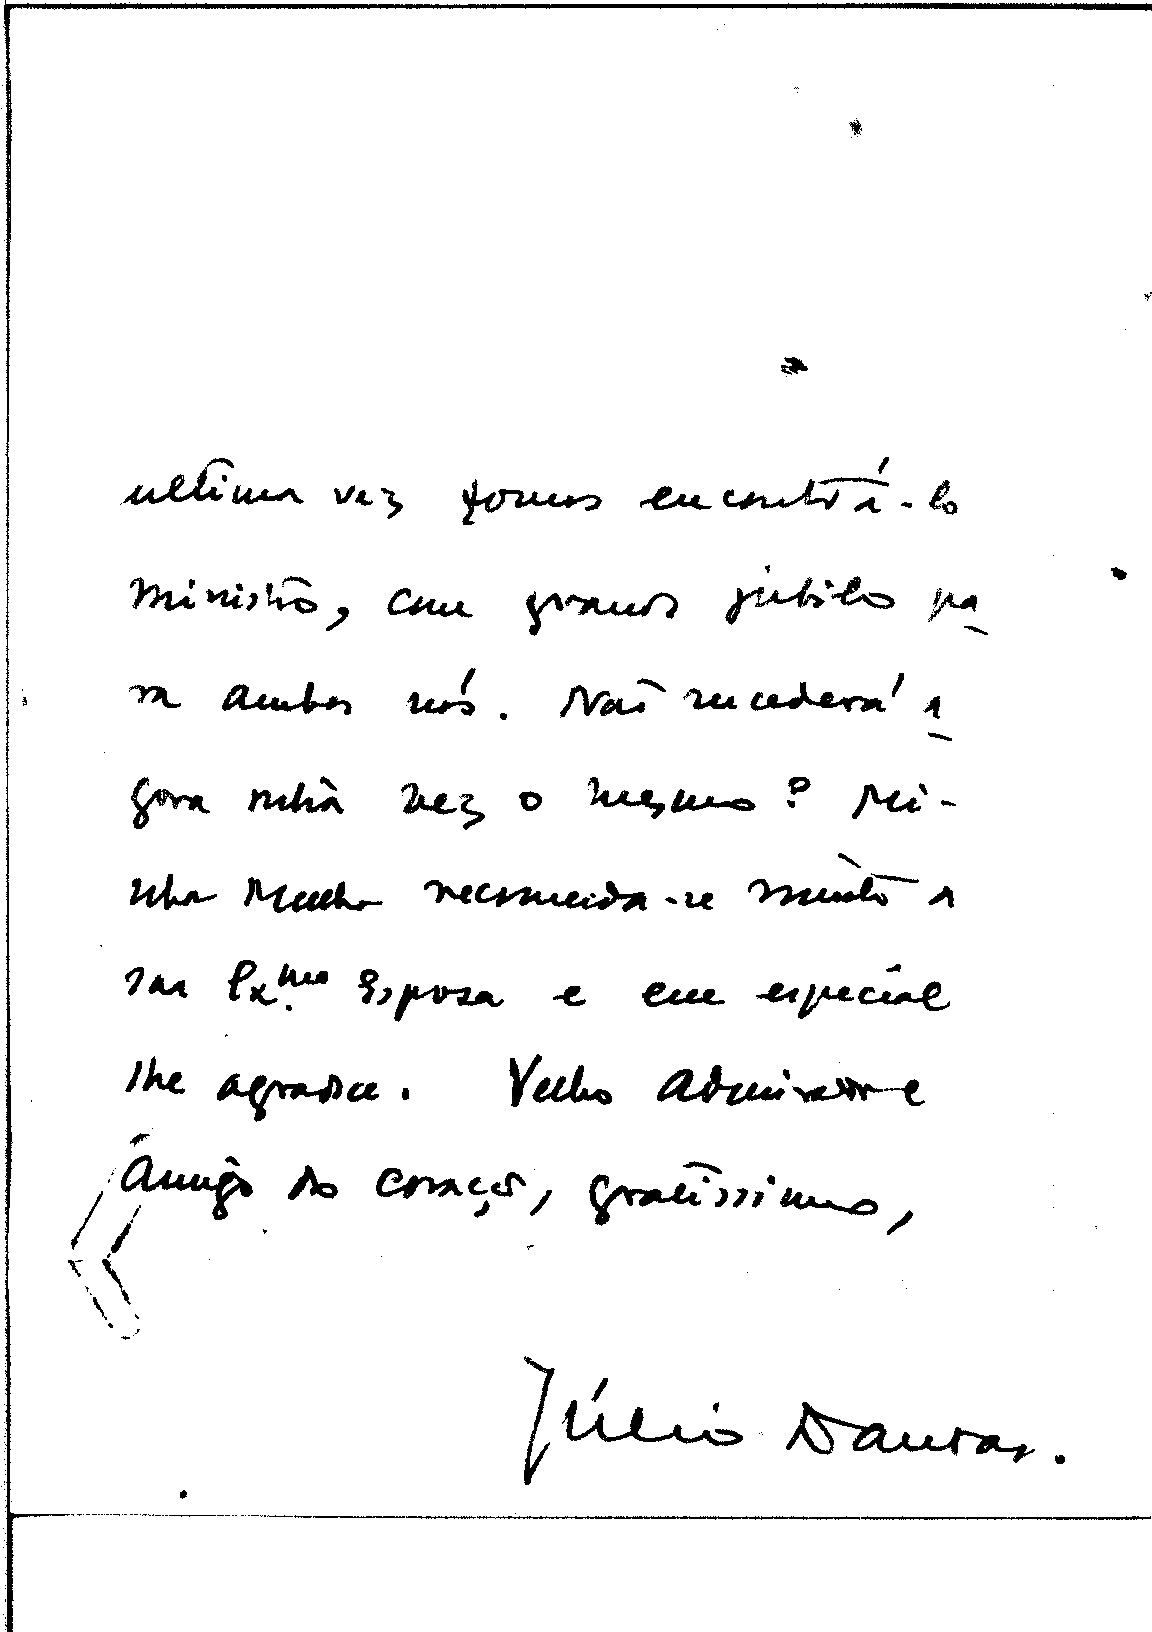 ultima vez fomos encontrá-lo
Ministro, com grande júbilo pa-
ra ambos nós. Não sucederá a-
gora outra vez o mesmo? Mi-
nha Mulher recomenda-se muito a
sua Ex.ma Esposa e em especial
lhe agradece. Velho Admirador e
Amigo do coração, gratíssimo,
Júlio Dantas.